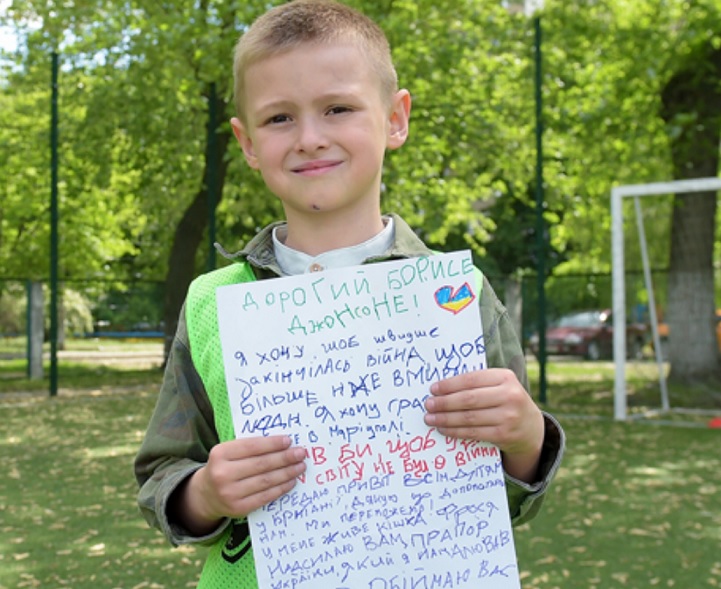 ДОРОГИЙ БОРИСЕ
ДЖОНСОНЕ!
Я ХОЧУ, ЩОБ ШВИДШЕ
ЗАКІНЧИЛАСЬ ВІЙНА ЩОБ
БІЛЬШЕ НЕ ВМИРАЛИ
ЛЮДИ. Я ХОЧУ
В Маріуполі.
БИ, ЩОБ У
СВІТУ НЕ БУЛО ВІЙНИ
ПЕРЕДАЮ ПРИВІТ ВСІМ ДІТЯМ
У БРИТАНІЇ, ДЯКУЮ ДОПОМАГАЄТЕ
НАМ. МИ ПЕРЕМОЖЕМО!
У МЕНЕ ЖИВЕ КІШКА ФРОСЯ
НАДСИЛАЮ ВАМ ПРАПОР
УКРАЇНИ, ЯКИЙ Я НАМАЛЮВАВ
ОБІЙМАЮ ВАС